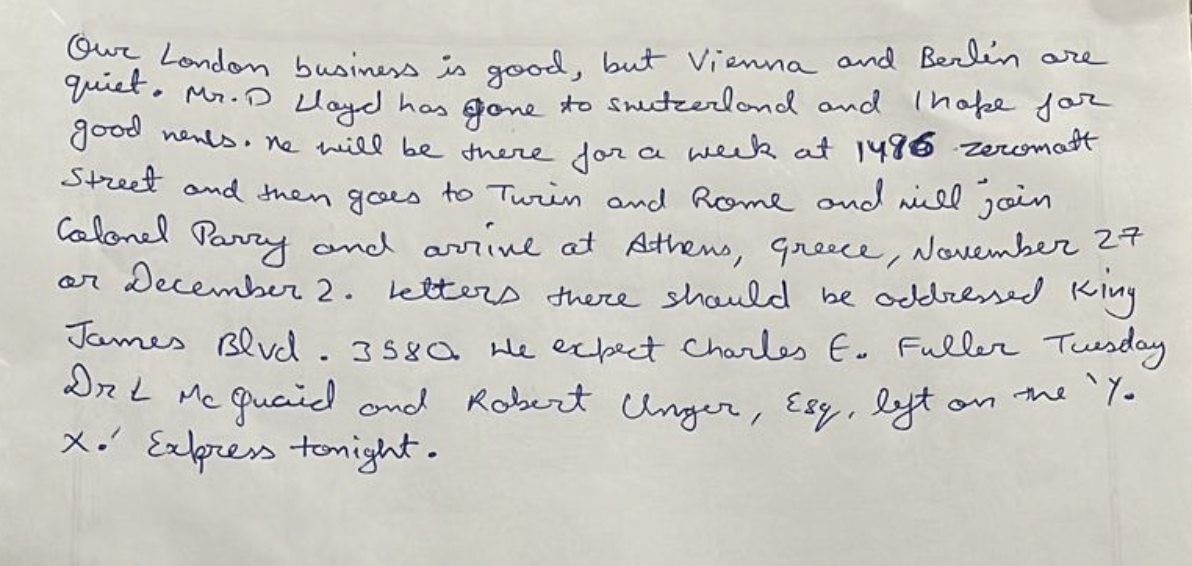 Our London business is good, but Vienna and Berlin are
quiet. Mr. D Lloyd has gone to switzerland and I hope for
good news. he will be there for a week at 1496 zeromatt
Street and then goes to Turin and Rome and will join
Colonel Parry and arrive at Athens, Greece, November 27
or December 2. Letters there should be addressed King
James Blvd. 3580. We expect Charles E. Fuller Tuesday
Dr L McQuaid and Robert Unger, Esq, left on the 'Y.
X.' Express tonight.